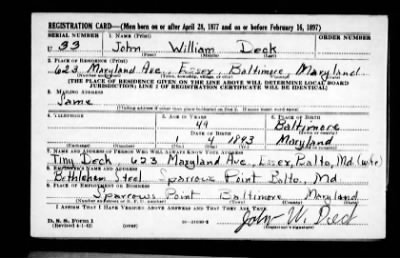 REGISTRATION CARD—(Men born on or after April 28, 1877 and on or before February 16, 1897)
SERIAL NUMBER 1. NAME (Print) ORDER NUMBER
U 33 John William Deck
(First) (Middle) (Last)
2. PLACE OF RESIDENCE (Print)
623 Maryland Ave, Essex Baltimore Maryland
(Number and street) (Town, township, village, or city) (County) (State)
[THE PLACE OF RESIDENCE GIVEN ON THE LINE ABOVE WILL DETERMINE LOCAL BOARD
JURISDICTION; LINE 2 OF REGISTRATION CERTIFICATE WILL BE IDENTICAL]
3. MAILING ADDRESS
Same
[Mailing address if other than place indicated on line 2. If same insert word same]
4. TELEPHONE 5. AGE IN YEARS 6. PLACE OF BIRTH
49 Baltimore
DATE OF BIRTH
1 4 1893 Maryland
7. NAME AND ADDRESS OF PERSON WHO WILL ALWAYS KNOW YOUR ADDRESS
Tiny Deck 623 Maryland Ave, Essex, Balto, Md. (wife)
8. EMPLOYER'S NAME AND ADDRESS
Bethlehem Steel Sparrows Point Balto, Md
9. PLACE OF EMPLOYMENT OR BUSINESS
Sparrows Point Baltimore Maryland
I AFFIRM THAT I HAVE VERIFIED ABOVE ANSWERS AND THAT THEY ARE TRUE.
D. S. S. Form 1
(Revised 4-1-42)
John W. Deck
(Registrant's signature)